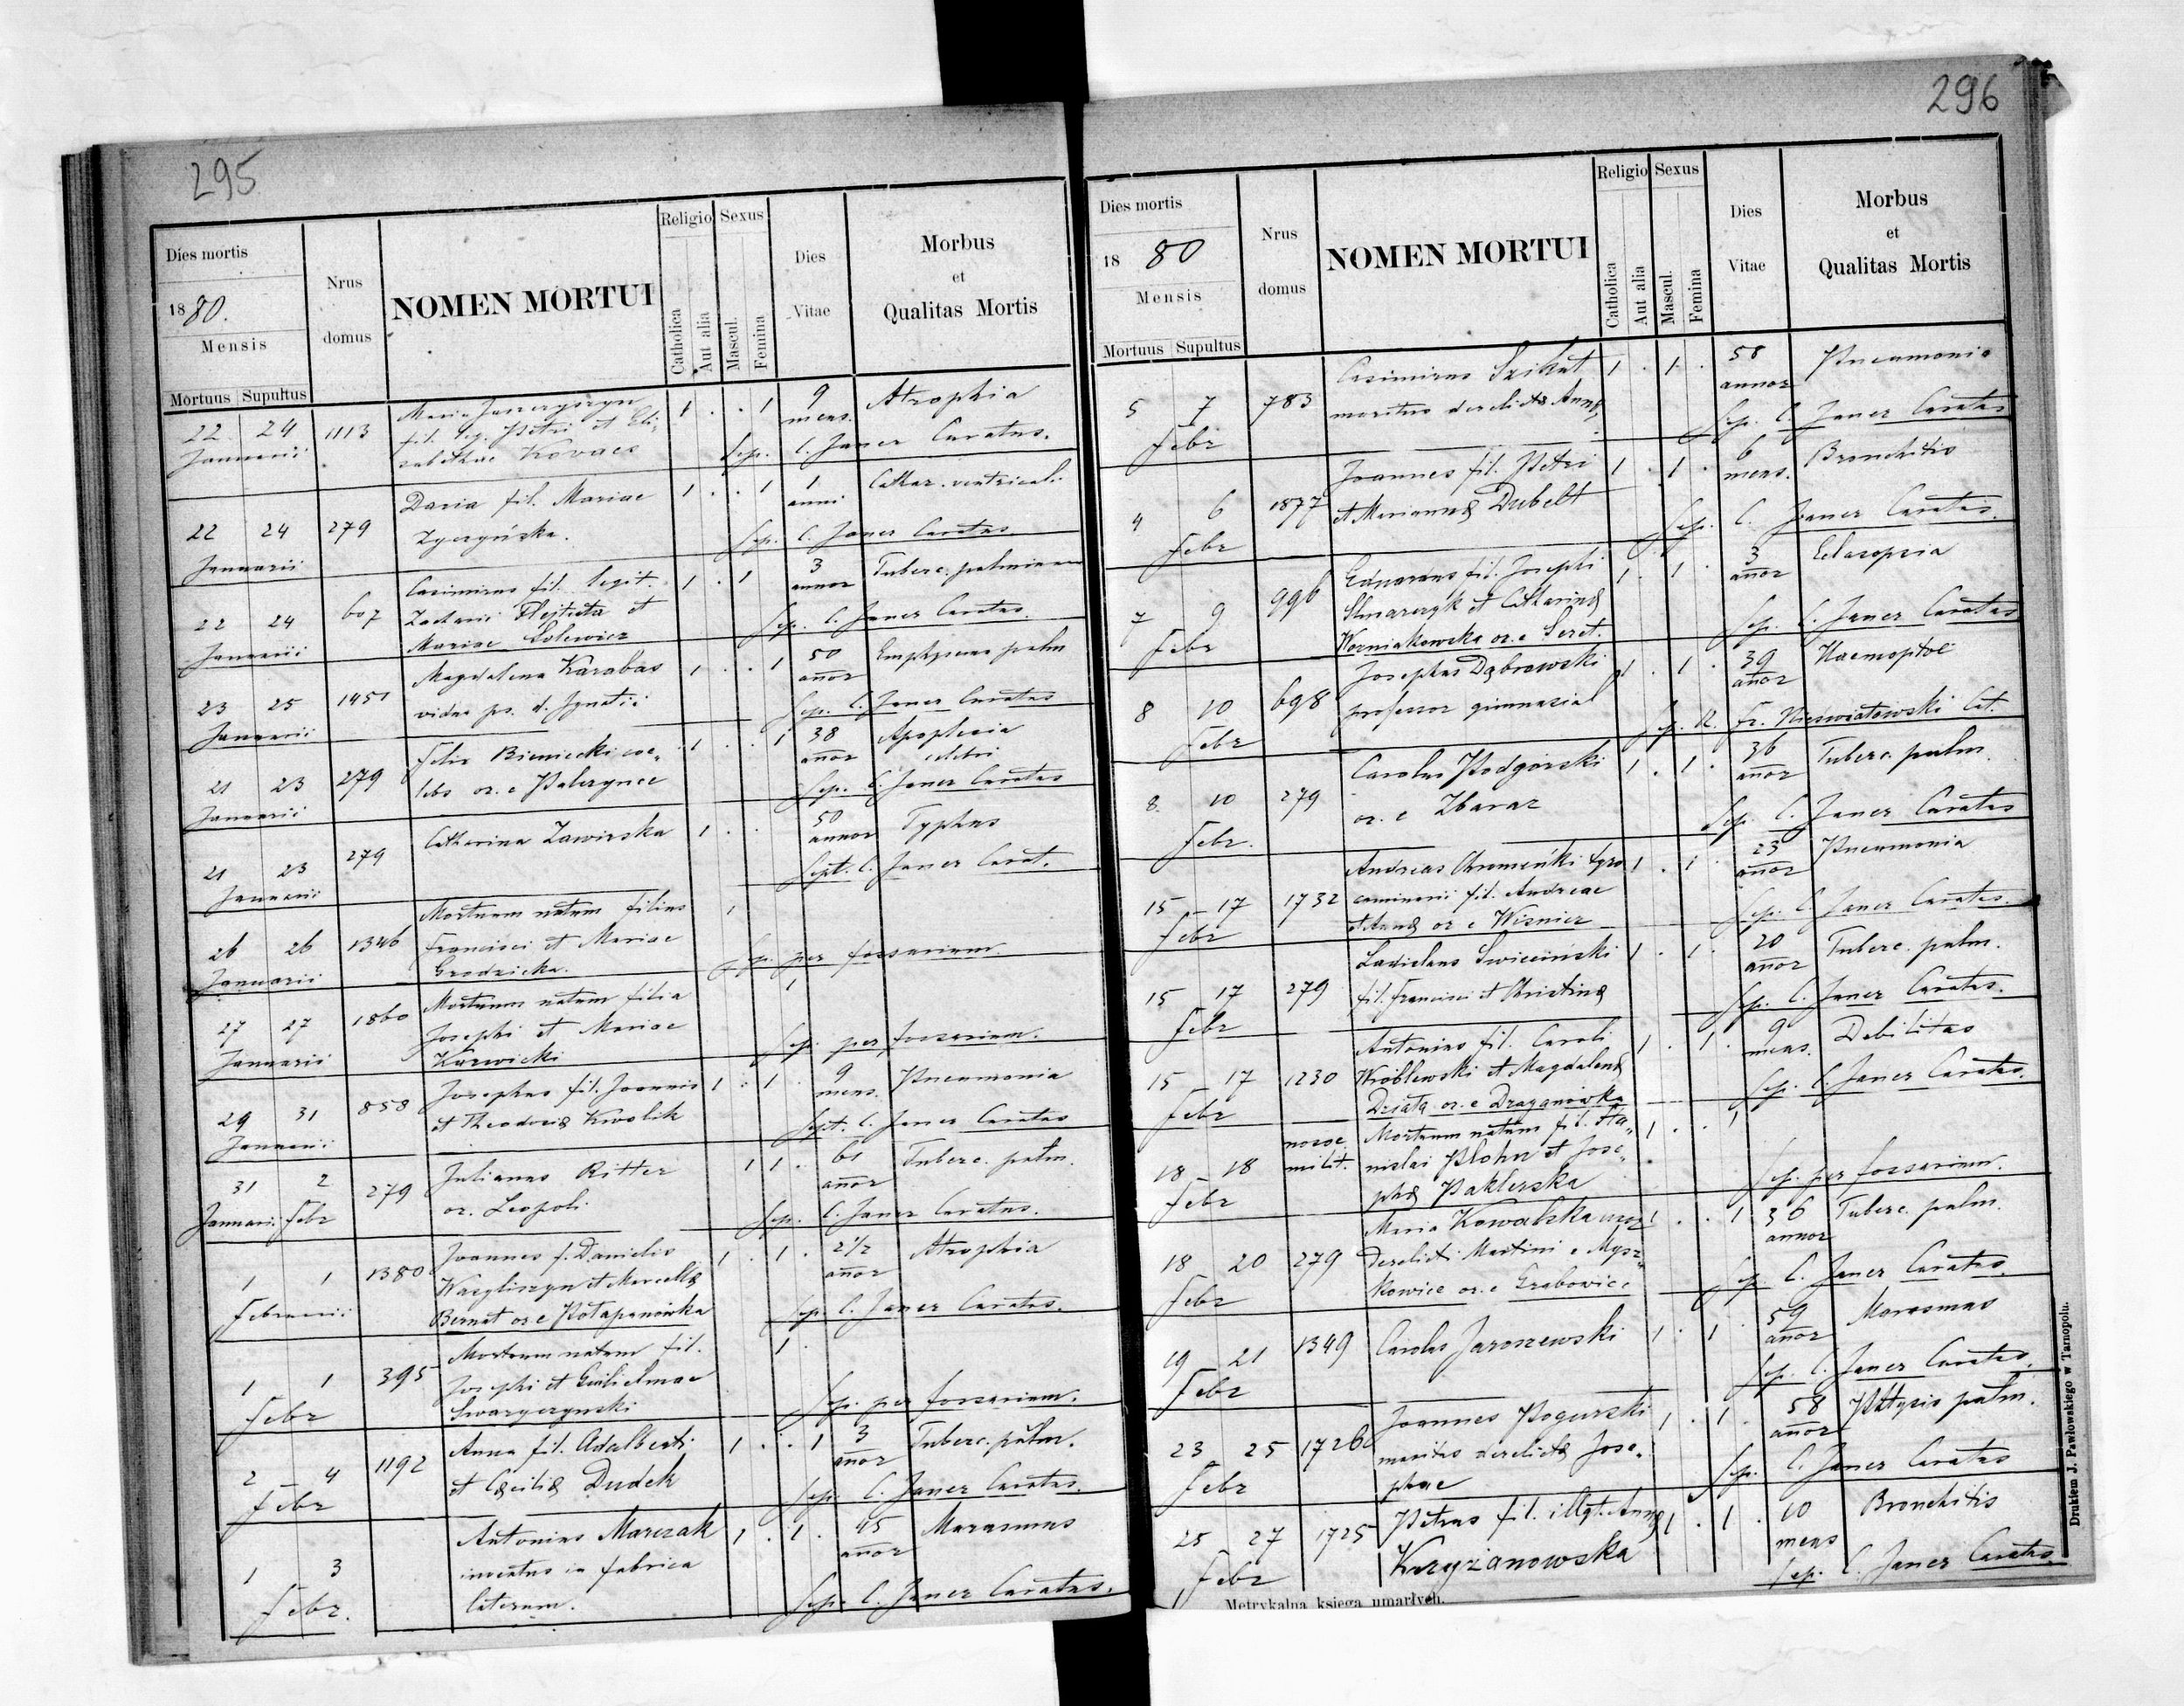 295
Dies mortis
1880.
Mensis
Mortuus Supultus
Nrus
domus
NOMEN MORTUI
Religio
Catholica
Aut alia
Sexus
Mascul.
Femina
Dies
Vitae
Morbus
et
Qualitas Mortis
22 24 1113 Maria 1 . . 1 9 Atrophia
Januarii fil. leg. Petri et Eli- mens.
zabethae Kovacs Sep. C. Janer Caratus.
22 24 279 Daria fil. Mariae 1 . . 1 1 Cathar. ventricul.
Januarii Zyczyńska. anni
Sep. C. Janer Caratus.
22 24 607 Casimirus fil. legit. 1 . 1 3 Tuberc. pulmonum
Januarii Zacharii et annor
Mariae Sep. C. Janer Caratus.
23 25 1451 Magdalena Karabas 1 . . 1 50 Emphysema pulm
Januarii vidua p. d. Ignatii añor
Sep. C. Janer Caratus
21 23 279 Felix Bieniecki coe- 1 . . 1 38 Apoplexia
Januarii lebs or. e añor
Sep. C. Janer Caratus
21 23 279 Catharina Zawirska 1 . . 50 Typhus
Januarii annor
Sept. C. Janer Carat.
26 26 1346 Mortuum natum filius 1
Januarii Francisci et Mariae
Grodzicka. Sep. per fossarium.
27 27 1860 Mortuum natum filia 1
Januarii Josephi et Mariae
Karwicki Sep. per fossarium.
29 31 858 Josephus fil. Joannis 1 . 1 . 9 Pneumonia
Januarii et Theodorię Kwolik mens.
Sept. C. Janer Caratus
31 2 279 Julianus Ritter 1 1 . 61 Tuberc. pulm.
Januarii Febr or. Leopoli. añor
Sep. C. Janer Caratus.
1 1 1380 Joannes f. Danielis 1 . 1 . 2 1/2 Atrophia
Februarii et Marcellę añor
Bernat or e Potapanówka Sep. C. Janer Caratus.
1 1 395 Mortuum natum fil. 1 .
Febr Josephi et Guilielmae
Swarzczynski Sep. per fossarium.
2 4 1192 Anna fil. Adalberti 1 . . 1 3 Tuberc. pulm.
Febr et Cęcilię Dudek añor
Sep. C. Janer Caratus.
1 3 Antonius Marczak 1 . 1 . 45 Marasmus
Febr. inventus in fabrica añor
laterum. Sep. C. Janer Caratus.
296
Dies mortis
1880
Mensis
Mortuus Supultus
Nrus
domus
NOMEN MORTUI
Religio
Catholica
Aut alia
Sexus
Mascul.
Femina
Dies
Vitae
Morbus
et
Qualitas Mortis
5 7 783 Casimirus Szikut 1 . 1 . 58 Pneumonia
Febr maritus derelictę Annę annor
Sep. C. Janer Caratus
4 6 1877 Joannes fil. Petri 1 . 1 . 6 Bronchitis
Febr et Mariannę Dubelt mens.
Sep. C. Janer Caratus.
7 9 996 Eduardus fil. Josephi 1 . 1 . 3 Eclampsia
Febr et Catharinę añor
Worniakowska or. e Seret. Sep. C. Janer Caratus
8 10 698 Josephus Dąbrowski 1 . 1 . 39 Haemoptoe
Febr professor gimnasial añor
Sep. R. Fr. Nieświatowski Cat.
8 10 279 Carolus Podgórski 1 . 1 . 36 Tuberc. pulm.
Febr. or. e Zbaraz añor
Sep. C. Janer Caratus
15 17 1732 Andreas Chromeński tyro 1 . 1 . 23 Pneumonia
Febr caminarii fil. Andreae añor
et Annę or e Wisnicz Sep. C. Janer Caratus.
15 17 279 Ladislaus Swieciński 1 . 1 . 20 Tuberc. pulm.
Febr fil. Francisci et Christinę añor
Sep. C. Janer Caratus.
15 17 1230 Antonius fil. Caroli 1 . 1 . 9 Debilitas
Febr Wróblewski et Magdalenę mens.
Dziatą or. e Draganówka Sep. C. Janer Caratus.
18 18 nosoc. Mortuum natum fil. Sta- 1 . . 1
Febr milit. nislai Plohn et Jose-
phę Paklerska Sep. per fossarium.
18 20 279 Maria Kowalska uxor 1 . . 1 36 Tuberc. pulm.
Febr Derelicti Martini e Mysz- annor
kowice or. e Grabowice Sep. C. Janer Caratus.
19 21 1349 Carolus Jaroszewski 1 . 1 . 59 Marasmus
Febr añor
Sep. C. Janer Caratus.
23 25 1726 Joannes Pogurski 1 . 1 . 58 Phtysis pulm.
Febr maritus derelictę Jose- añor
phae Sep. C. Janer Caratus
25 27 1725 Petrus fil. illgt. Annę 1 . 1 . 10 Bronchitis
Febr Kryżanowska mens
Sep. C. Janer Caratus.
Metrykalna księga umarłych.
Drukiem J. Pawłowskiego w Tarnopolu.